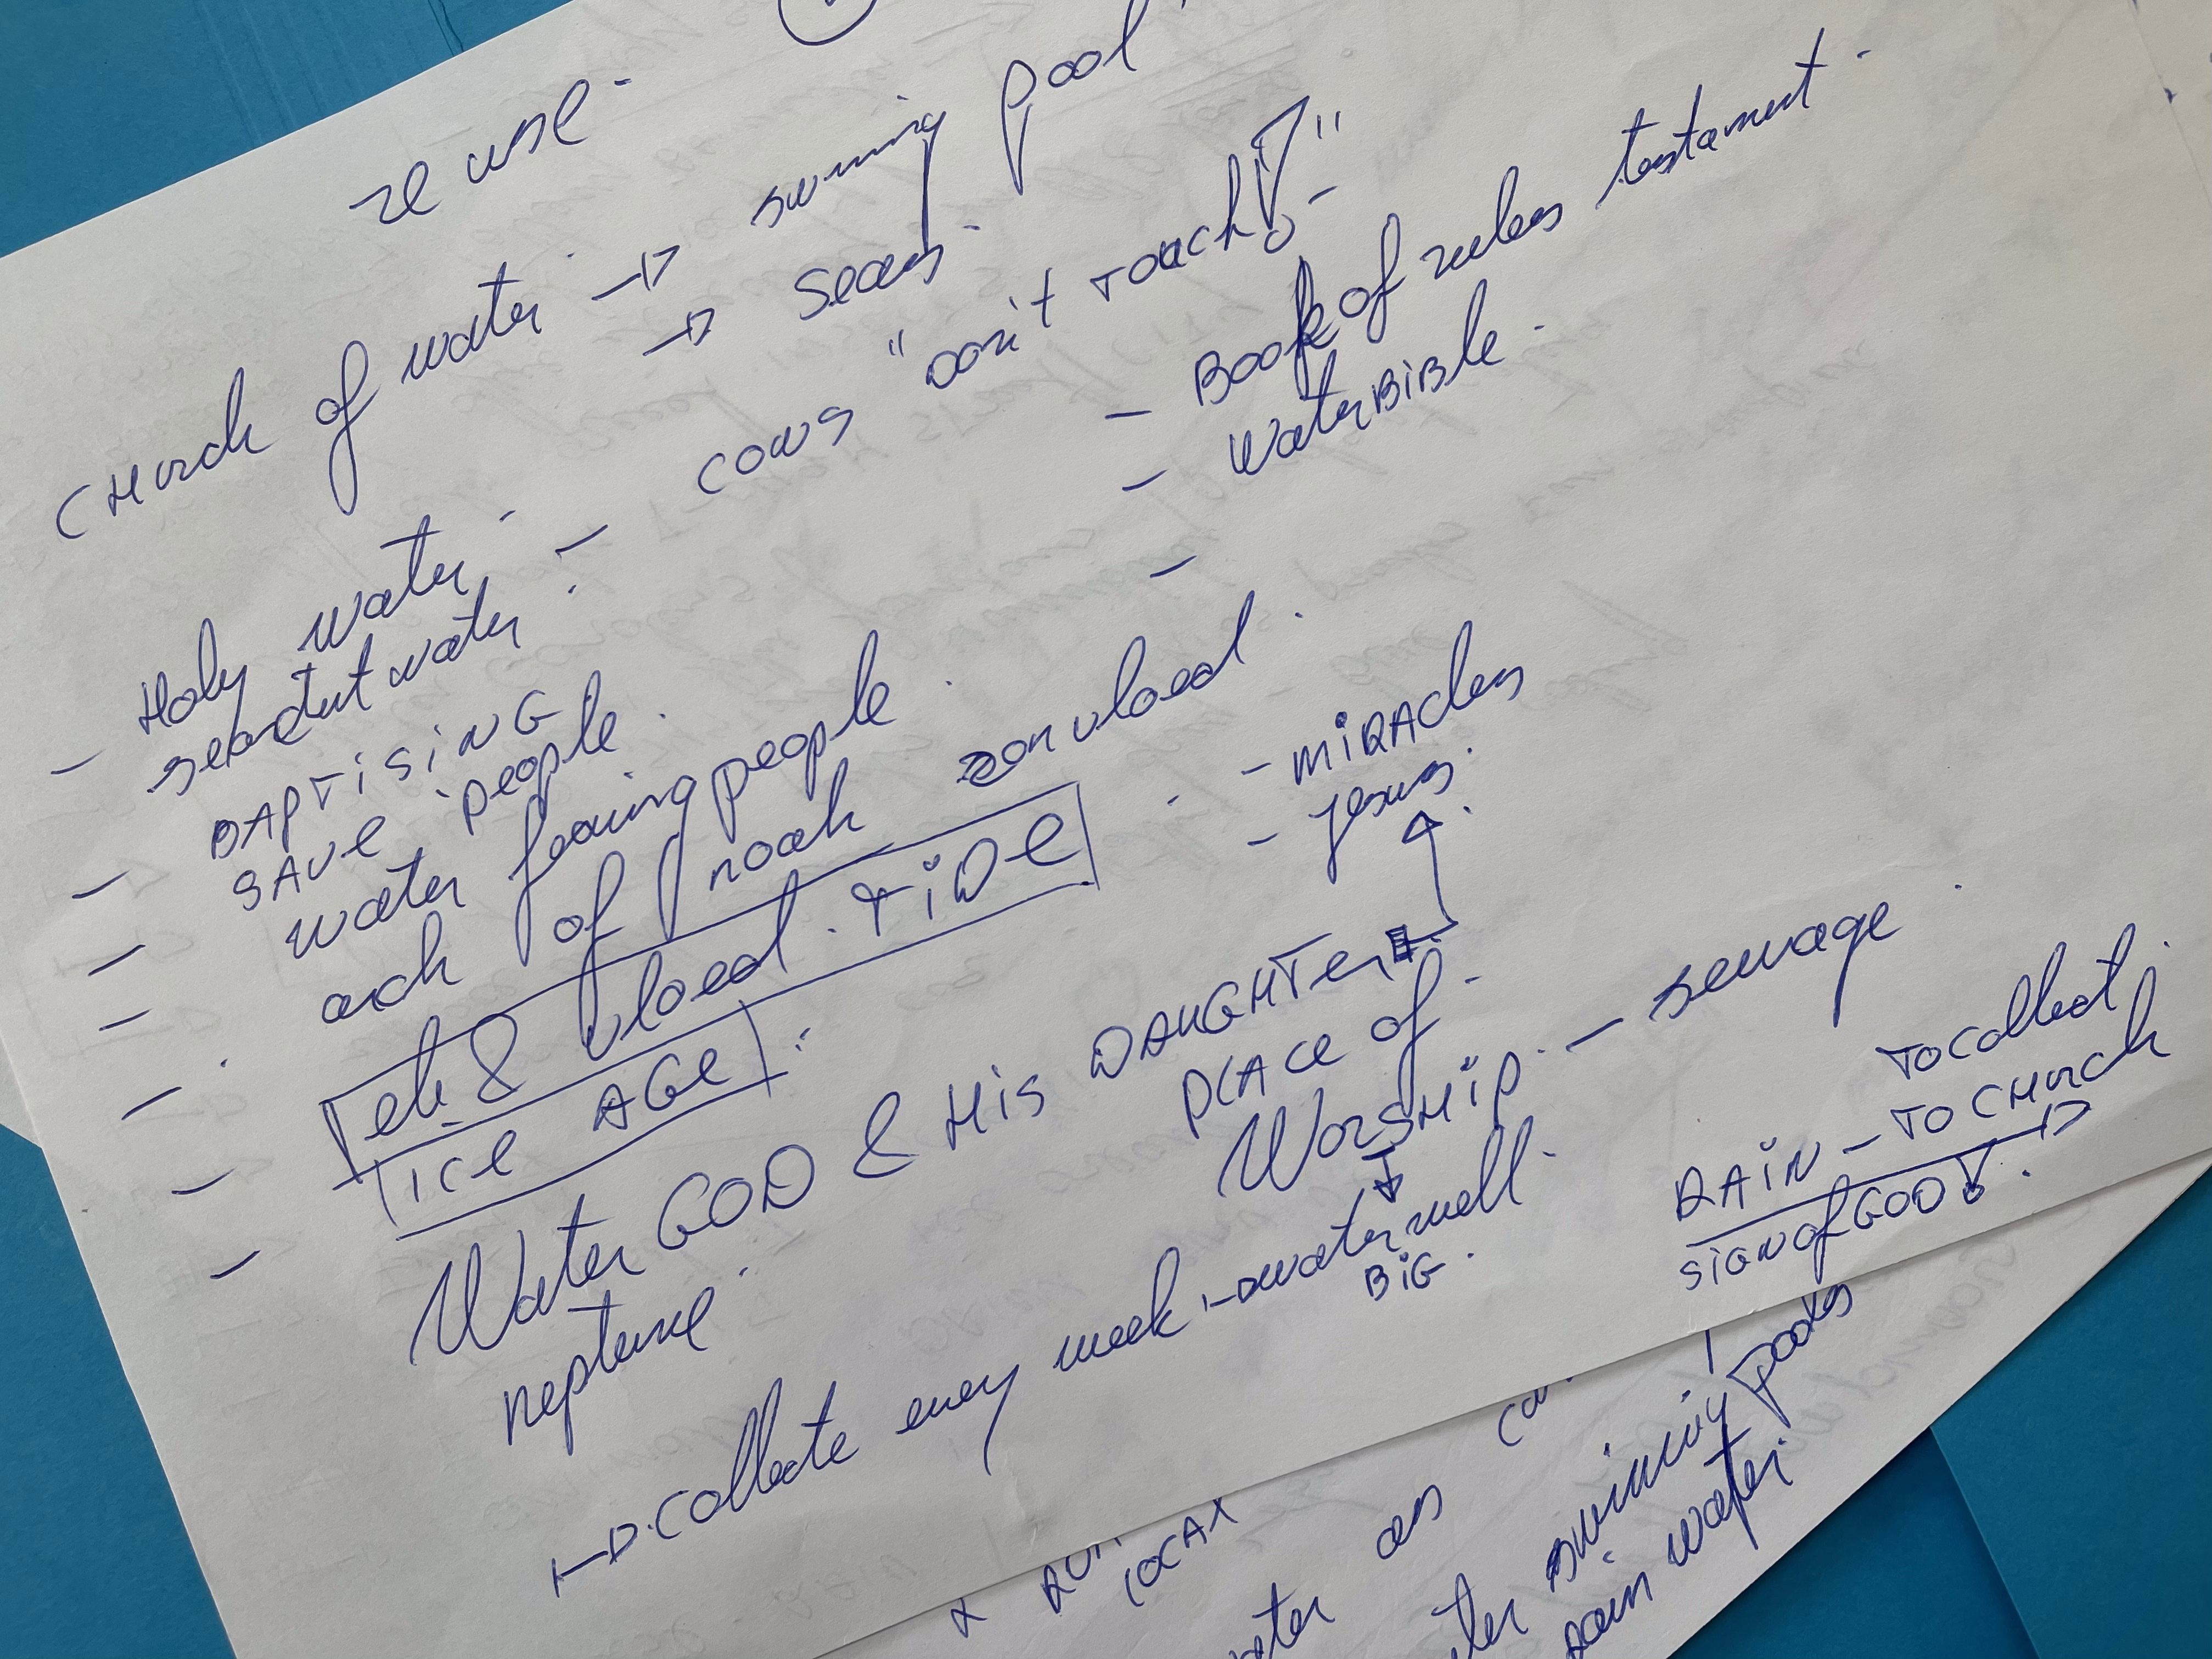 re use.
CHurch of water → swiming pool
→ Seas.
- Holy water. - cows "Don't Touch!"
- water.
- BAPTISING
- Book of rules testament.
- SAVE people.
- Water BiBle.
- water fearing people.
- arch of noah
& vloed. TiDe
ice AGe
- MiRAcles
- Jesus.
Water GOD & His DAUGHTer
neptune.
PLACe of
WorsHip. - sewage.
→ collecte every week. → water well.
BiG.
To collect.
RAiN - To CHurch
SiGN of GOD!
swiming pools
as
rain water.